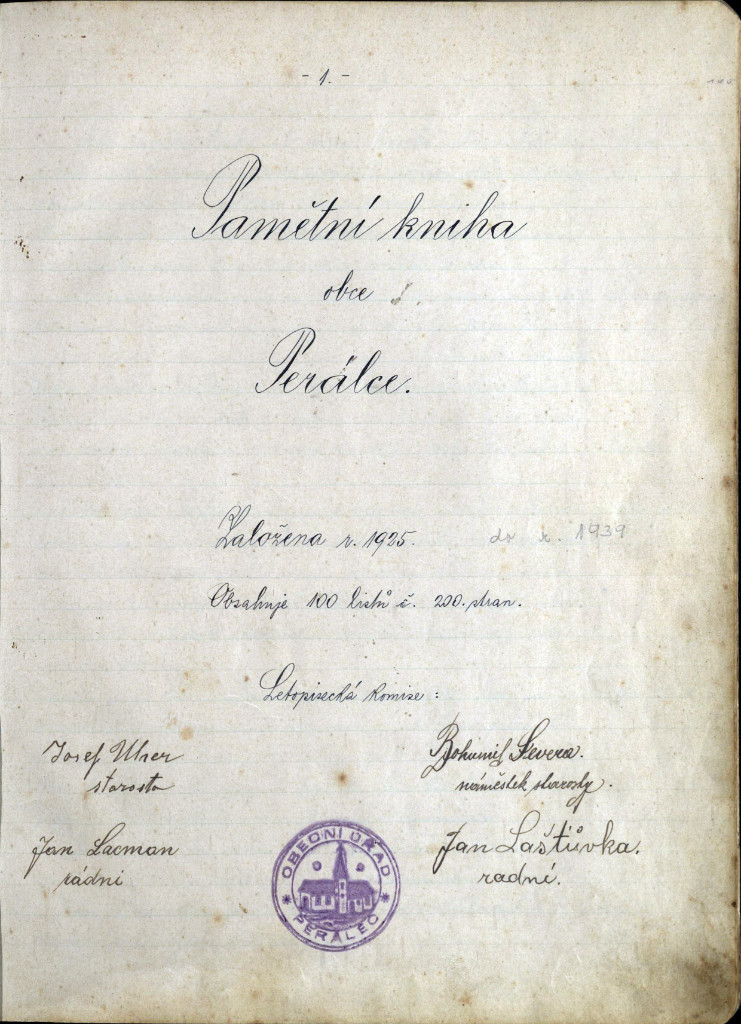 - 1. -
Pamětní kniha
obce
Perálce.
Založena r. 1925. do r. 1939
Obsahuje 100 listů č. 200. stran.
Letopisecká komise :
Josef Uher
starosta
Bohumil Severa.
náměstek starosty.
Jan Lacman
rádni
Jan Laštůvka.
radní.
OBECNÍ ÚŘAD
* PERÁLEC *